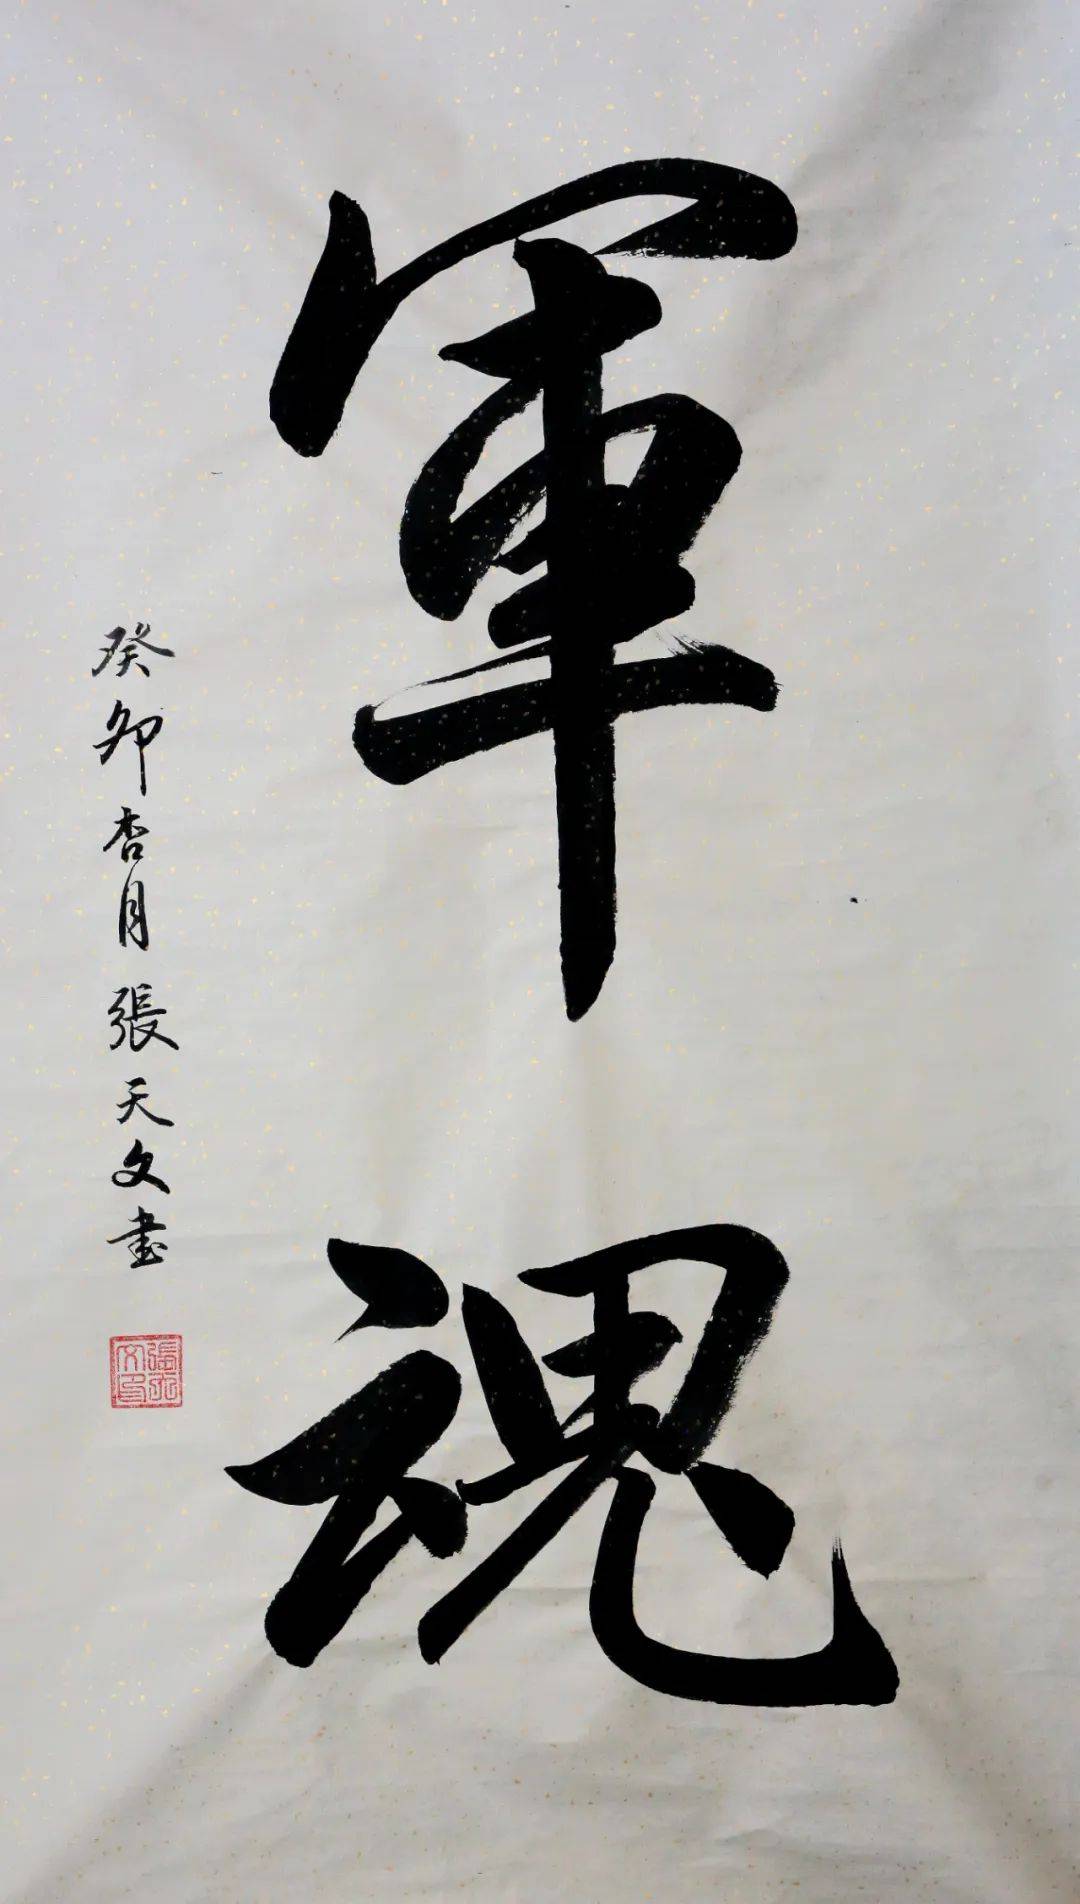 軍魂
癸卯杏月張天文書
張天文印